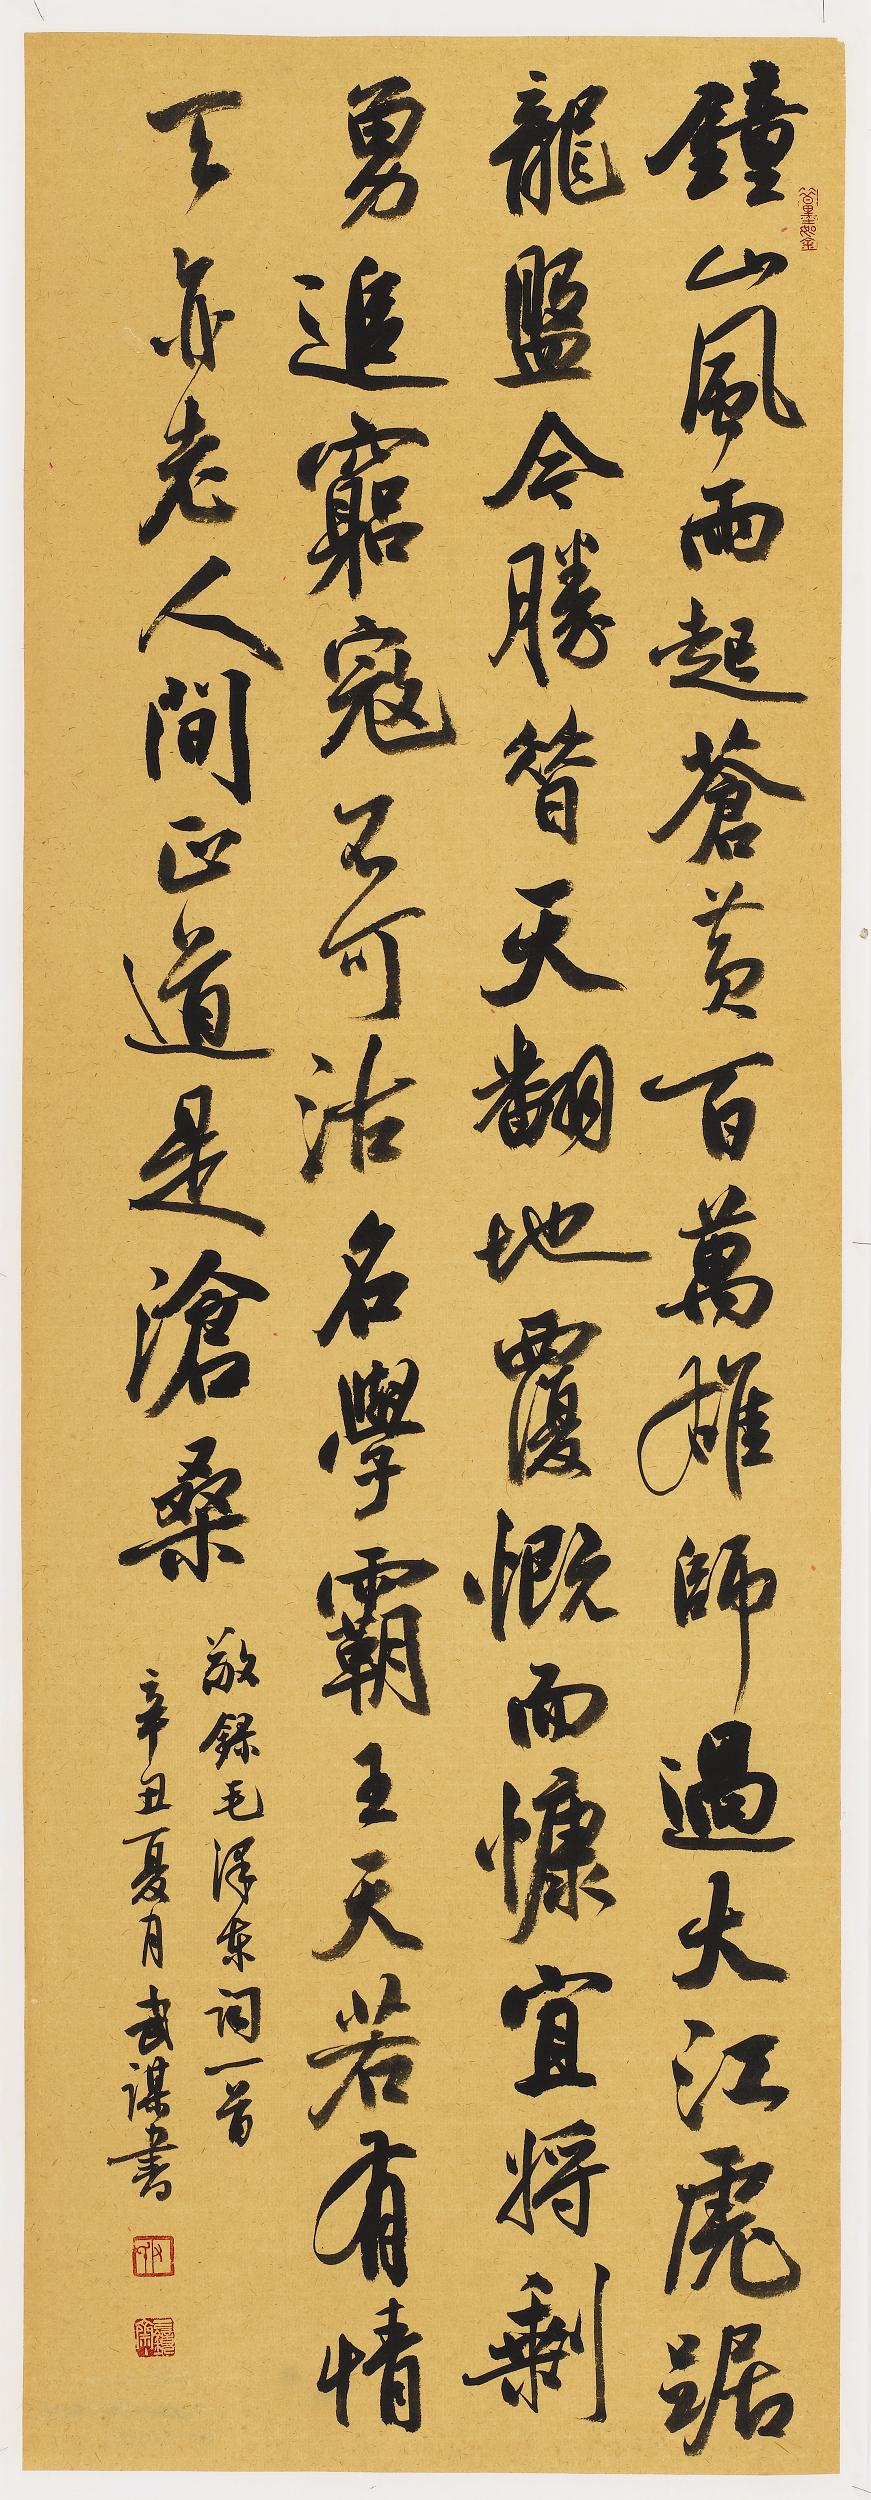 鐘山風雨起蒼黄百萬雄師過大江虎踞
龍盤今勝昔天翻地覆慨而慷宜將剩
勇追窮寇不可沽名學霸王天若有情
天亦老人間正道是滄桑
敬錄毛澤東詞一首
辛丑夏月武謀書